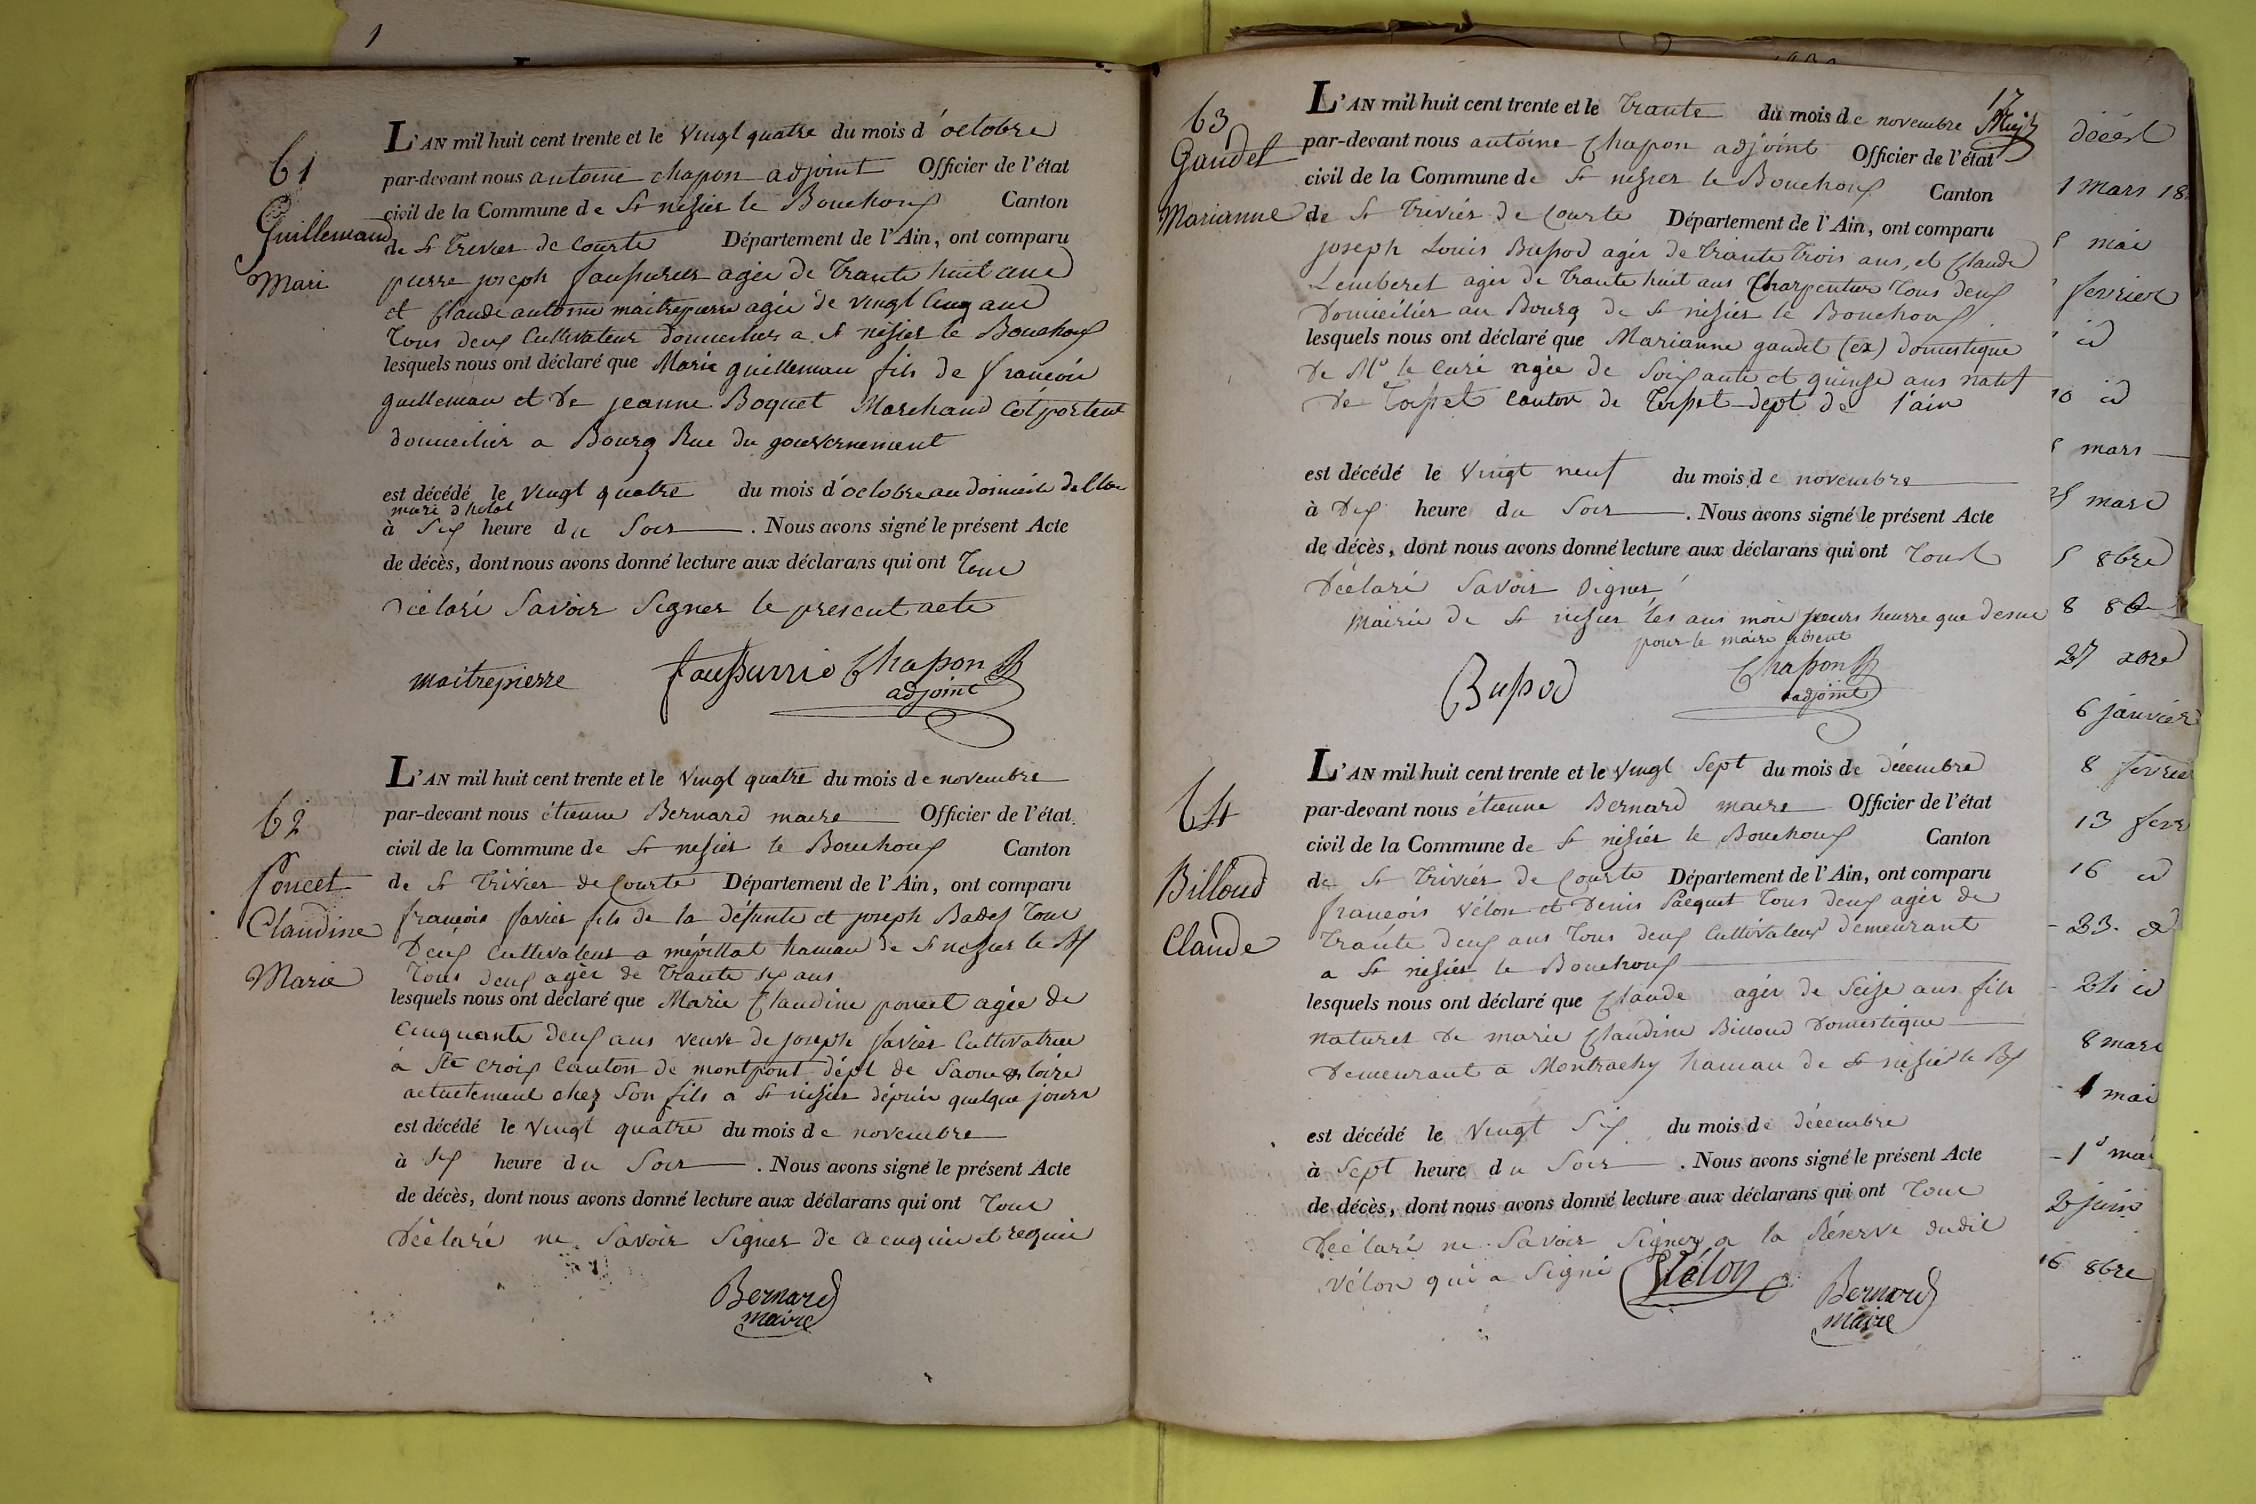 1
61
Guillemaud
Mari
L'AN mil huit cent trente et le vingt quatre du mois d'octobre
par-devant nous antoine chapon adjoint Officier de l'état
civil de la Commune de St nisier le Bouchoux Canton
de St Trivier de Courte Département de l'Ain, ont comparu
pierre joseph agée de trante huit ans
et Claude antoine maitrepierre agée de vingt cinq ans
tous deux Cultivateur domicilier a St nisier le Bouchoux
lesquels nous ont déclaré que Marie guillemau fils de françois
guillemau et de jeanne Boquet Marchand Colporteur
domicilier a Bourg Rue du gouvernement
est décédé le vingt quatre du mois d'octobre au domicile de
à Six heure du Soir. Nous avons signé le présent Acte
de décès, dont nous avons donné lecture aux déclarans qui ont tous
déclaré Savoir Signer le present acte
maitrepierre Chapon
adjoint
62
Poncet
Claudine
Marie
L'AN mil huit cent trente et le vingt quatre du mois de novembre
par-devant nous étienne Bernard maire Officier de l'état
civil de la Commune de St nisier le Bouchoux Canton
de St Trivier de Courte Département de l'Ain, ont comparu
françois favier fils de la défunte et joseph Badez tous
deux Cultivateur a mépillat hamau de St nisier le Bx
tous deux agée de trante six ans
lesquels nous ont déclaré que Marie Claudine poncet agée de
cinquante deux ans veuve de joseph favier Cultivatrice
à Ste Croix Canton de montpont dépt de Saone et loire
actuelement chez Son fils a St nisier dépuis quelque jours
est décédé le vingt quatre du mois de novembre
à Six heure du Soir. Nous avons signé le présent Acte
de décès, dont nous avons donné lecture aux déclarans qui ont tous
déclaré ne Savoir Signer de ce enquis et requis
Bernard
maire
17
63
Gaudet
Marianne
L'AN mil huit cent trente et le trante du mois de novembre
par-devant nous antoine Chapon adjoint Officier de l'état
civil de la Commune de St nisier le Bouchoux Canton
de St Triviér de Courte Département de l'Ain, ont comparu
joseph Louis Bussod agée de trante trois ans, et Claude
Lemberet agée de trante huit ans Charpentier tous deux
domicilier au Bourg de St nisier le Bouchoux
lesquels nous ont déclaré que Marianne gaudet (ex) domestique
de Mr le Curé agée de Soixante et quinze ans natif
de canton de dept de l'ain
est décédé le vingt neuf du mois de novembre
à Dix heure du Soir. Nous avons signé le présent Acte
de décès, dont nous avons donné lecture aux déclarans qui ont tous
déclaré Savoir Signer
Mairie de St nisier les ans mois jours heurre que desus
pour le maire absent
Bussod Chapon
adjoint
64
Billoud
Claude
L'AN mil huit cent trente et le vingt Sept du mois de décembre
par-devant nous étienne Bernard maire Officier de l'état
civil de la Commune de St nisiér le Bouchoux Canton
de St Triviér de Courte Département de l'Ain, ont comparu
françois Vélon et Denis Pacquet tous deux agée de
trante deux ans tous deux Cultivateur demeurant
a St nisier le Bouchoux
lesquels nous ont déclaré que Claude agée de Seize ans fils
naturel de marie Claudine Billoud domestique
demeurant a Montrachy hamau de St nisier le Bx
est décédé le vingt Six du mois de décembre
à Sept heure du Soir. Nous avons signé le présent Acte
de décès, dont nous avons donné lecture aux déclarans qui ont tous
déclaré ne Savoir Signer a la Réserve dudit
Vélon qui a Signé Vélon
Bernard
maire
1 mars 18
mai
fevrier
id
10 id
mars
mars
8bre
8
27 xbre
6 janvier
8 fevrier
13 fevr
16 id
23. id
24 id
8 mars
1 mai
1er mai
2 juin
16 8bre